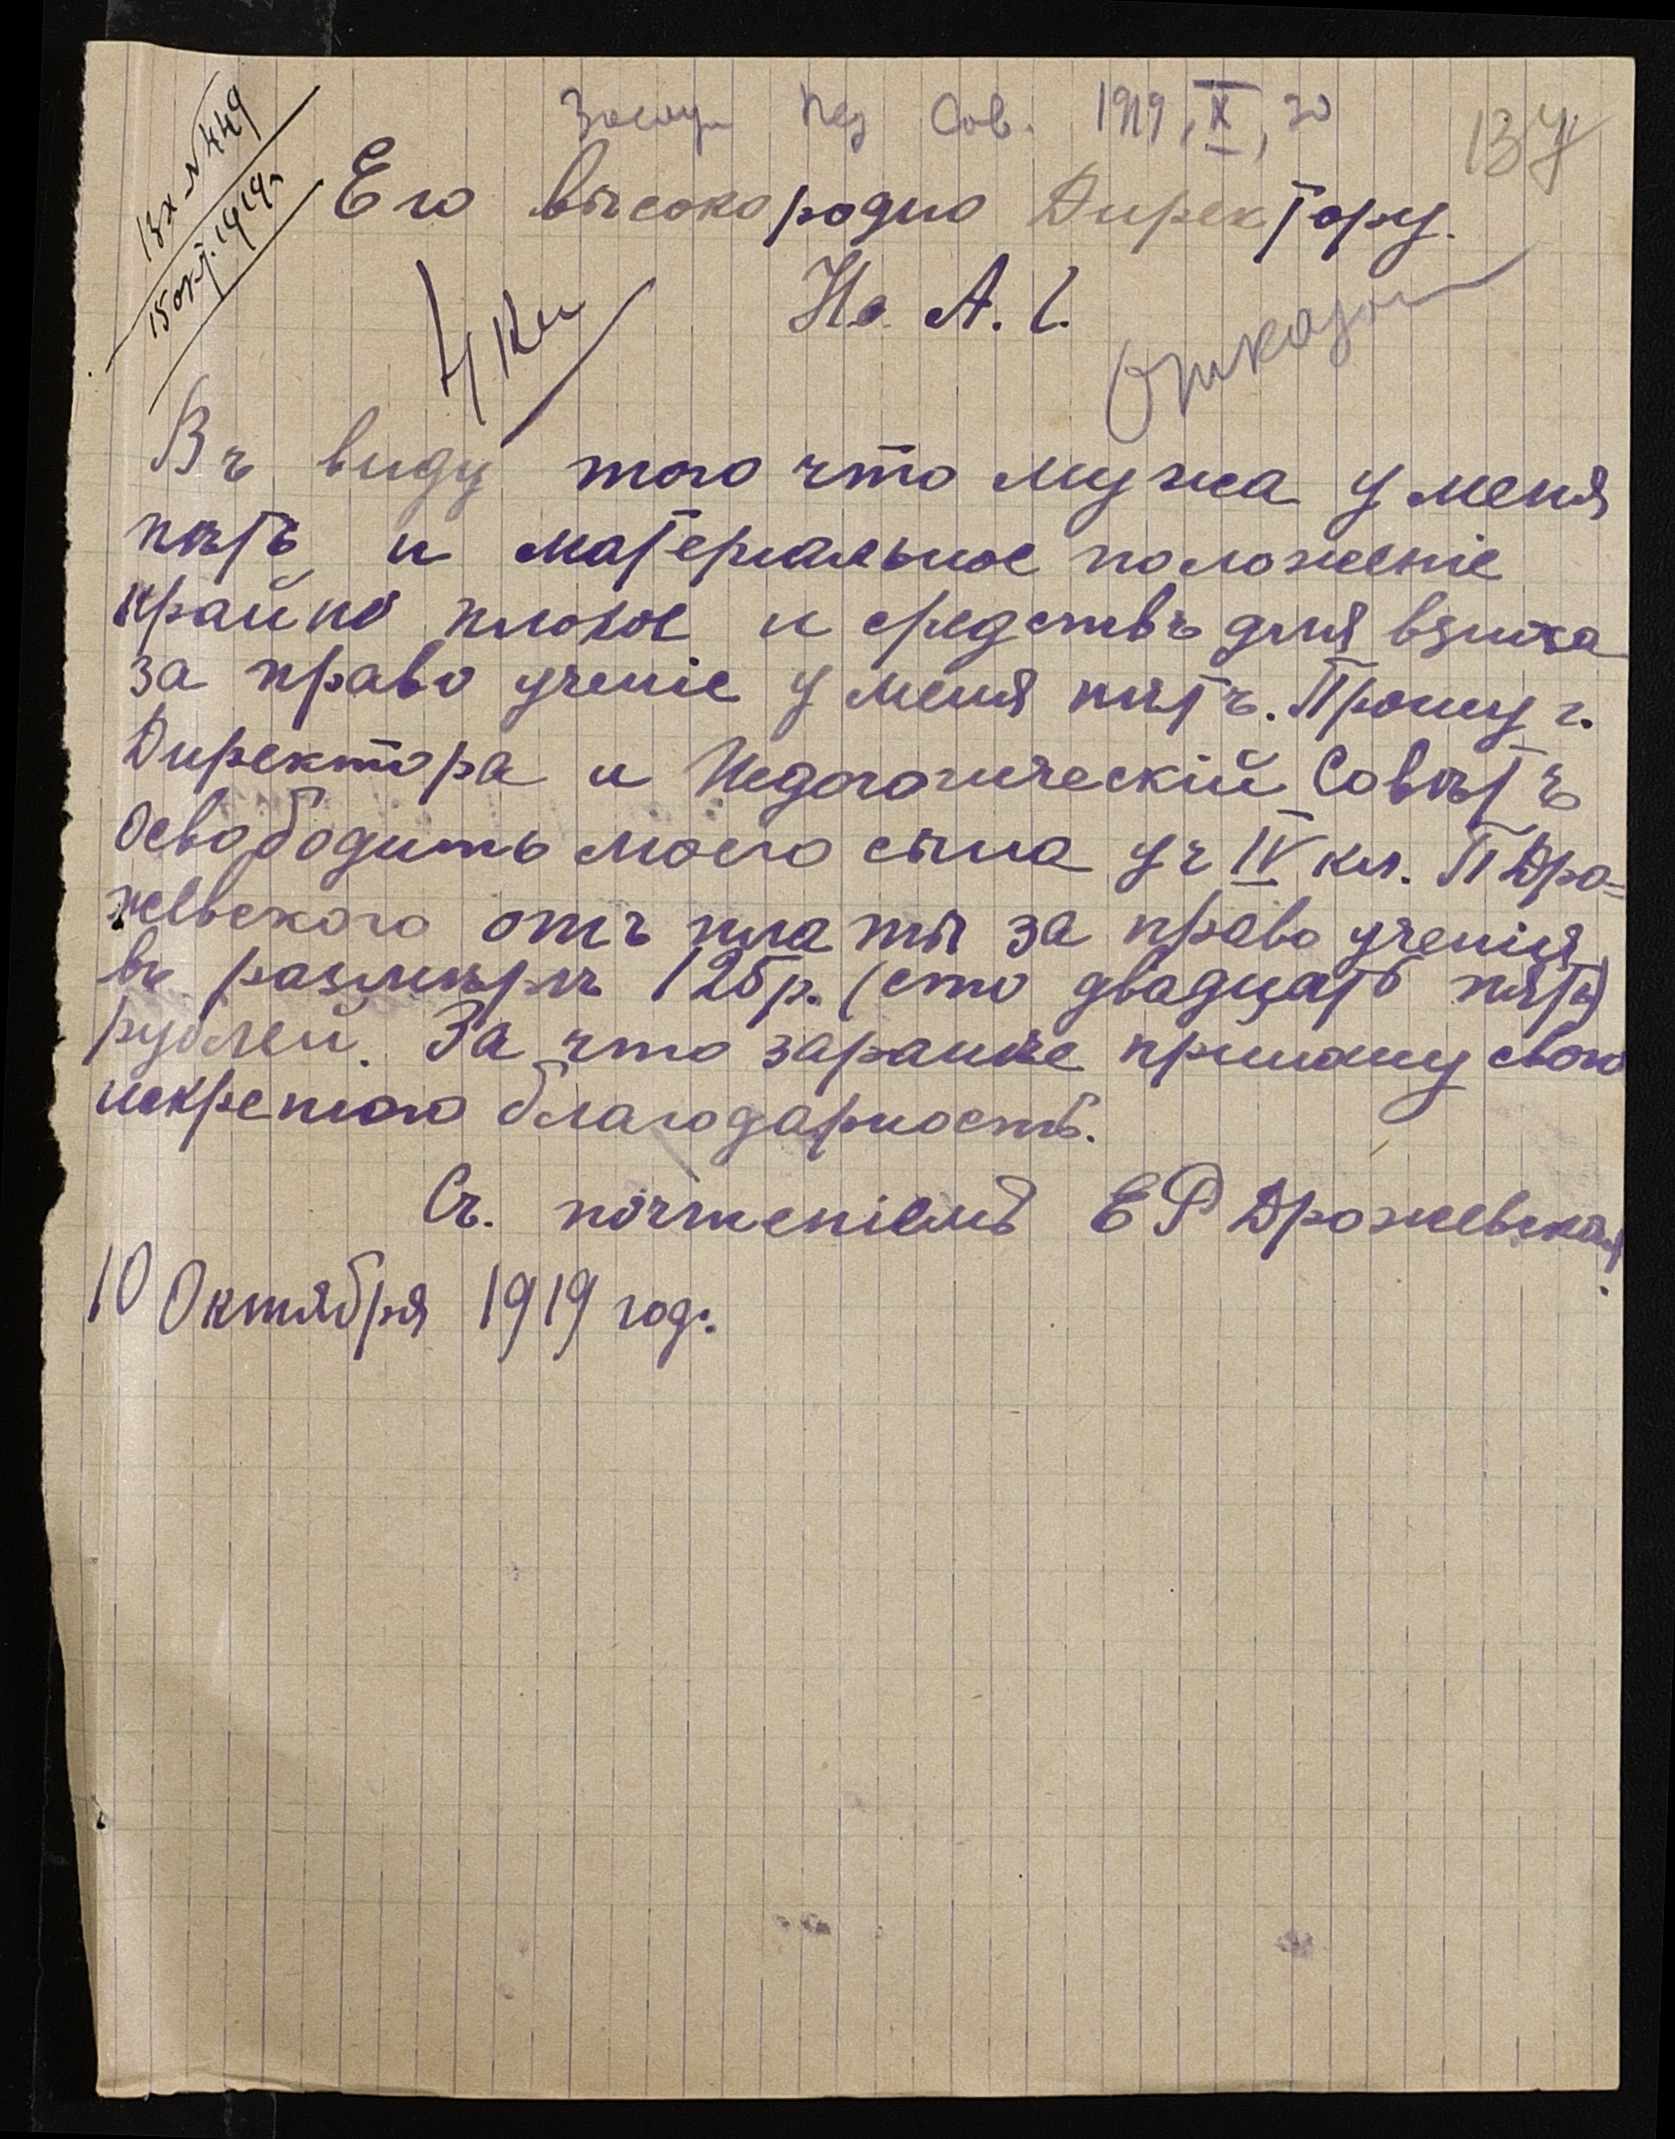 Вх. N 449
15 окт. 1919 г.
Заслуш Пед Сов. 1919, X, 30
137
Его высокородию Директору.
А. С.
Отказать
Въ виду того что мужа у меня
нѣтъ и матеріальное положеніе
крайно плохое и средствъ для взноса
за право ученіе у меня нѣтъ. Прошу г.
Директора и Педогогическій Совѣтъ
освободить моего сына уч IV кл. П Дро=
жевского отъ платы за право ученія
въ размѣрѣ 125 р. (сто двадцать пять)
рублей. За что заранѣе приношу свою
искреною благодарность.
Съ. почтеніемъ Е Р Дрожевская.
10 Октября 1919 год.